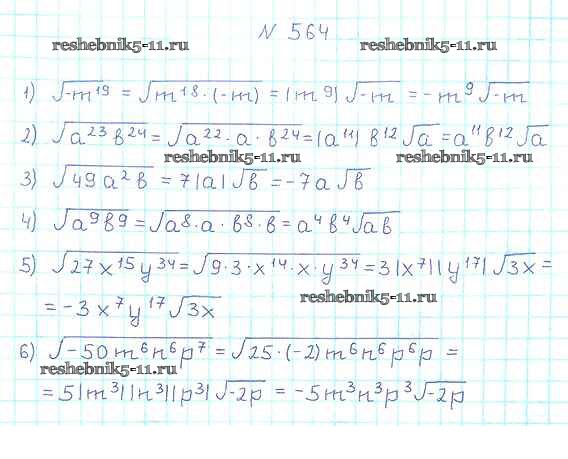 N 564
reshebnik5-11.ru reshebnik5-11.ru
1) √-m¹⁹ = √m¹⁸·(-m) = |m⁹| √-m = -m⁹ √-m
2) √a²³b²⁴ = √a²²·a·b²⁴ = |a¹¹| b¹² √a = a¹¹b¹² √a
reshebnik5-11.ru reshebnik5-11.ru
3) √49a²b = 7|a| √b = -7a √b
4) √a⁹b⁹ = √a⁸·a·b⁸·b = a⁴b⁴ √ab
5) √27x¹⁵y³⁴ = √9·3·x¹⁴·x·y³⁴ = 3|x⁷||y¹⁷| √3x =
reshebnik5-11.ru
= -3x⁷y¹⁷ √3x
6) √-50m⁶n⁶p⁷ = √25·(-2)m⁶n⁶p⁶p =
reshebnik5-11.ru
= 5|m³||n³||p³| √-2p = -5m³n³p³ √-2p